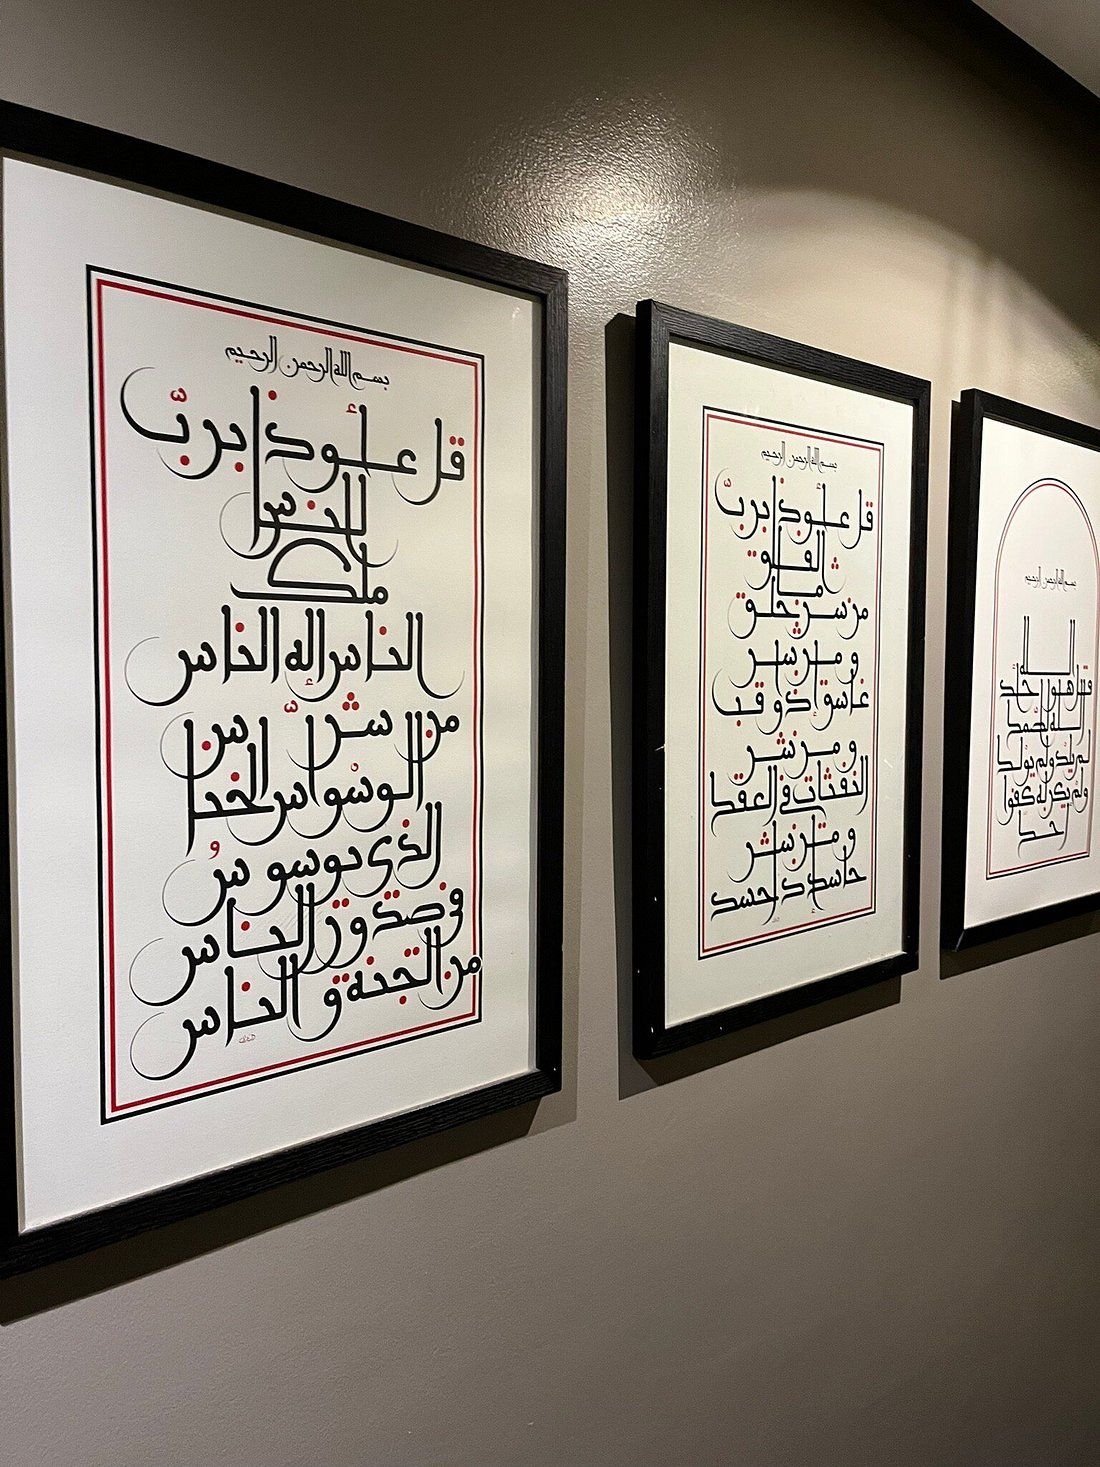 بسم الله الرحمن الرحيم
قل أعوذ بربّ
الناس
ملك
الناس إله الناس
من شرّ
الوسواس الخناس
الذي يوسوس
في صدور الناس
من الجنة و الناس
بسم الله الرحمن الرحيم
قل أعوذ بربّ
الفلق
من شر ما خلق
و من شر
غاسق إذا وقب
و من شر
النفثات في العقد
و من شر
حاسد إذا حسد
بسم الله الرحمن الرحيم
قل هو الله أحد
الله الصمد
لم يلد ولم يولد
ولم يكن له كفوا
أحد